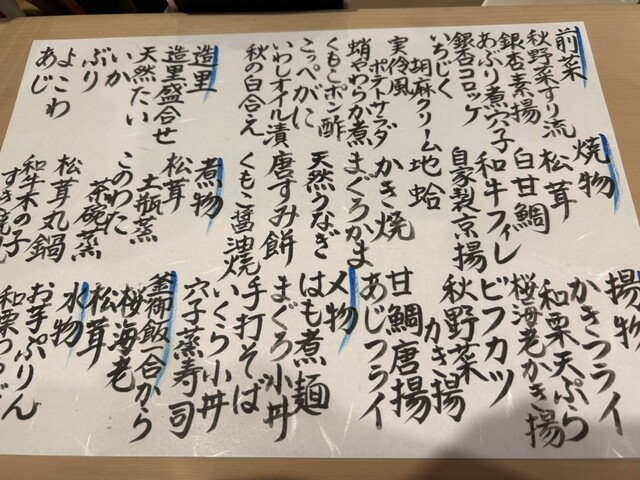 前菜
秋野菜すり流
銀杏素揚
あぶり煮穴子
銀杏コロッケ
いちじく
胡麻クリーム
実伶風
ポテトサラダ
蛸やわらか煮
くもこポン酢
こっぺがに
いわしオイル漬
秋の白合え
造里
造里盛合せ
天然たい
いか
ぶり
よこわ
あじ
焼物
松茸
白甘鯛
和牛フィレ
自家製京揚
地蛤
かき焼
まぐろかま
天然うなぎ
唐すみ餅
くもこ醤油焼
煮物
松茸
土瓶蒸
このわた
茶碗蒸
松茸丸鍋
和牛木の子
すき焼
揚物
かきフライ
和栗天ぷら
桜海老かき揚
ビフカツ
秋野菜
かき揚
甘鯛唐揚
あじフライ
〆物
はも煮麺
まぐろ小丼
手打そば
いくら小丼
穴子蒸寿司
釜御飯一合から
桜海老
松茸
水物
お芋ぷりん